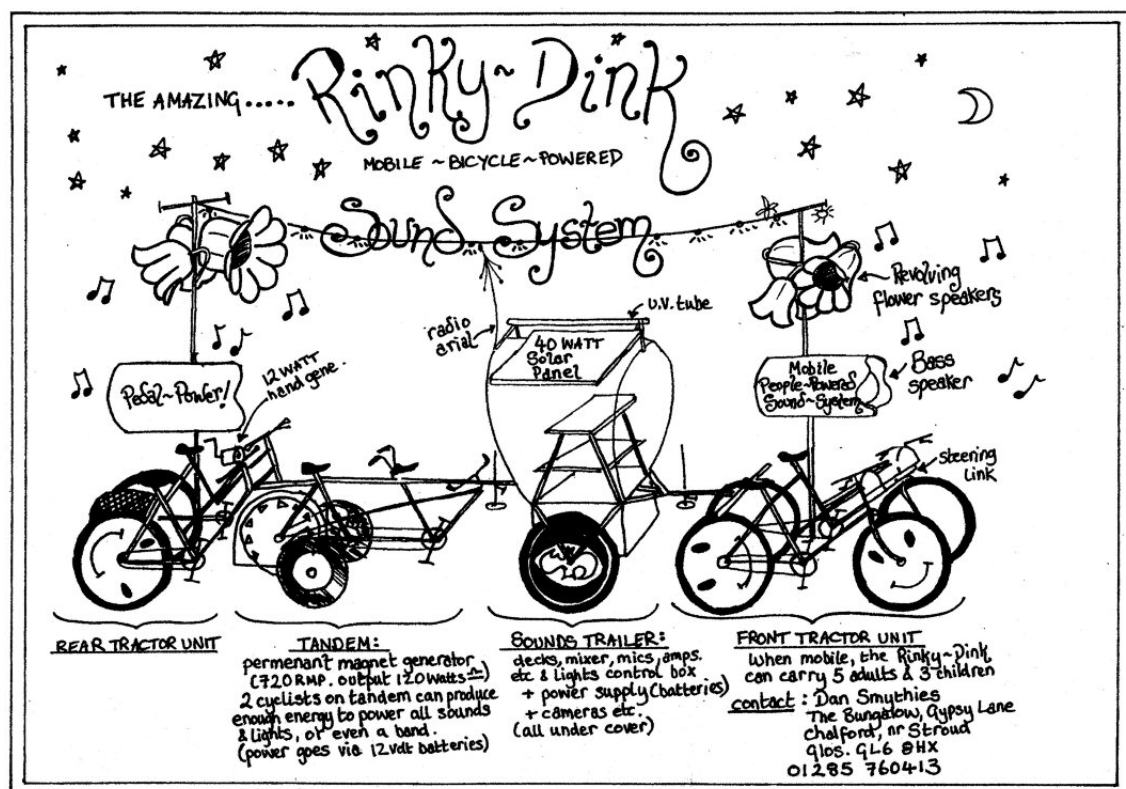 THE AMAZING.....
Rinky~Dink
MOBILE~BICYCLE~POWERED
Sound System
Revolving
flower speakers
U.V. tube
radio
arial
40 WATT
Solar
Panel
12 WATT
hand gene.
Pedal~Power!
Mobile
People~Powered
Sound~System
Bass
speaker
Steering
Link
REAR TRACTOR UNIT
TANDEM:
permenant magnet generator
(720 RMP. output 120 Watts
2 cyclists on tandem can produce
enough energy to power all sounds
& Lights, or even a band.
(power goes via 12 volt batteries)
SOUNDS TRAILER:
decks, mixer, mics, amps.
etc & Lights control box
+ power supply (batteries)
+ cameras etc.
(all under cover)
FRONT TRACTOR UNIT
When mobile, the Rinky~Dink
can carry 5 adults & 3 children
contact: Dan Smythies
The Bungalow, Gypsy Lane
Chalford, nr Stroud
Glos. GL6 8HX
01285 760413